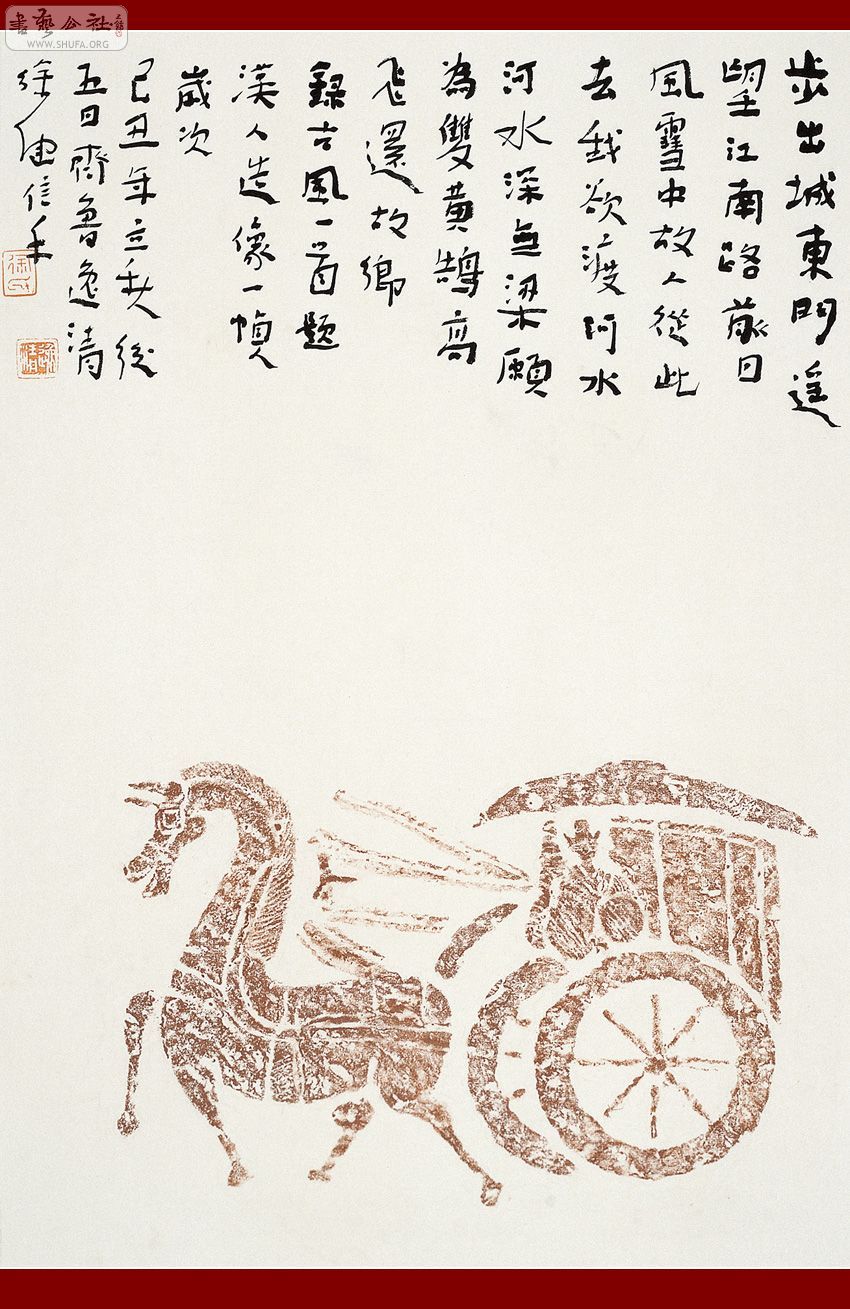 書藝公社
WWW.SHUFA.ORG
步出城東門遙
望江南路前日
風雪中故人從此
去我欲渡河水
河水深無梁願
為雙黃鵠高
飛還故鄉
錄古風一首題
漢人造像一幀
歲次
己丑年立秋後
五日齊魯逸清
徐信